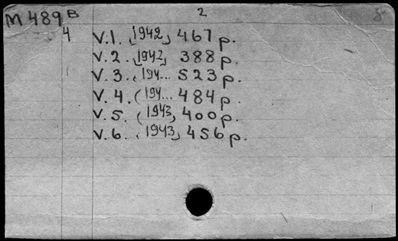 M489B 2 8
4 V.1. (1942) 467 p.
V.2. (1942) 388 p.
V.3. (194... 523 p.
V.4. (194... 484 p.
V.5. (1943, 400 p.
V.6. (1943) 456 p.